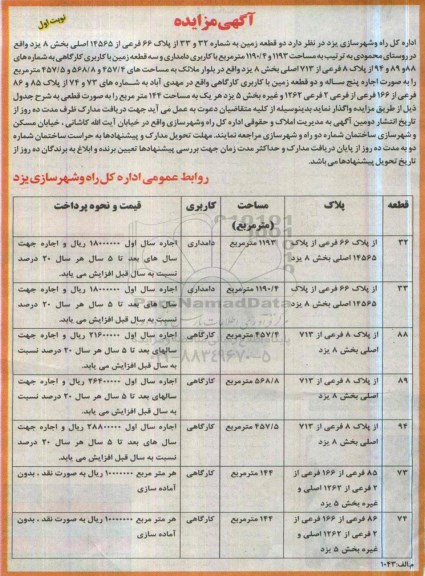 آگهی مزایده
نوبت اول
اداره کل راه وشهرسازی یزد در نظر دارد دو قطعه زمین به شماره ۳۲ و ۳۳ از پلاک ۶۶ فرعی از ۱۴۵۶۵ اصلی بخش ۸ یزد واقع
در روستای محمودی به ترتیب به مساحت ۱۱۹۳ و ۱۱۹۰/۴ مترمربع با کاربری دامداری و سه قطعه زمین با کاربری کارگاهی به شماره های
۸۸ و ۸۹ و ۹۴ از پلاک ۸ فرعی از ۷۱۳ اصلی بخش ۸ یزد واقع در بلوار ملانکه به مساحت های ۴۵۷/۴ و ۵۶۸/۸ و ۴۵۷/۵ مترمربع
را به صورت اجاره پنج ساله و دو قطعه زمین با کاربری کارگاهی واقع در مهدی آباد به شماره های ۷۳ و ۷۴ از پلاک ۸۵ و ۸۶
فرعی از ۱۶۶ فرعی از فرعی ۲ فرعی ۱۲۶۲ و غیره بخش ۵ یزد هر یک به مساحت ۱۴۴ متر مربع را به صورت قطعی به شرح جدول
ذیل از طریق مزایده واگذار نماید بدینوسیله از کلیه متقاضیان دعوت به عمل می آید جهت دریافت مدارک ظرف مدت ده روز از
تاریخ انتشار دومین آگهی به مدیریت املاک و حقوقی اداره کل راه وشهرسازی واقع در خیابان آیت الله کاشانی ، خیابان مسکن
و شهرسازی ساختمان شماره دو راه و شهرسازی مراجعه نمایند. مهلت تحویل مدارک و پیشنهادها به حراست ساختمان شماره
دو به مدت ده روز از پایان دریافت مدارک و حداکثر مدت زمان جهت بررسی پیشنهادها تعیین برنده و ابلاغ به برندگان ده روز از
تاریخ تحویل پیشنهادها می باشد.
روابط عمومی اداره کل راه وشهرسازی یزد
قطعه پلاک مساحت (مترمربع) کاربری قیمت و نحوه پرداخت
۳۲ از پلاک ۶۶ فرعی از پلاک ۱۱۹۳ مترمربع دامداری اجاره سال اول ۱۸۰۰۰۰۰۰ ریال و اجاره جهت
۱۴۵۶۵ اصلی بخش ۸ یزد سال های بعد تا ۵ سال هر سال ۲۰ درصد
نسبت به سال قبل افزایش می یابد.
۳۳ از پلاک ۶۶ فرعی از پلاک ۱۱۹۰/۴ مترمربع دامداری اجاره سال اول ۱۸۰۰۰۰۰۰ ریال و اجاره جهت
۱۴۵۶۵ اصلی بخش ۸ یزد سال های بعد تا ۵ سال هر سال ۲۰ درصد
نسبت به سال قبل افزایش می یابد.
۸۸ از پلاک ۸ فرعی از ۷۱۳ ۴۵۷/۴ مترمربع کارگاهی اجاره سال اول ۳۱۶۰۰۰۰۰ ریال و اجاره جهت
اصلی بخش ۸ یزد سالهای بعد تا ۵ سال هر سال ۲۰ درصد نسبت
به سال قبل افزایش می یابد.
۸۹ از پلاک ۸ فرعی از ۷۱۳ ۵۶۸/۸ مترمربع کارگاهی اجاره سال اول ۲۶۴۰۰۰۰۰ ریال و اجاره جهت
اصلی بخش ۸ یزد سالهای بعد تا ۵ سال هر سال ۲۰ درصد نسبت
به سال قبل افزایش می یابد.
۹۴ از پلاک ۸ فرعی از ۷۱۳ ۴۵۷/۵ مترمربع کارگاهی اجاره سال اول ۲۸۸۰۰۰۰۰ ریال و اجاره جهت
اصلی بخش ۸ یزد سال های بعد تا ۵ سال هر سال ۲۰ درصد
نسبت به سال قبل افزایش می یابد.
۷۳ ۸۵ فرعی از ۱۶۶ فرعی از ۱۴۴ مترمربع کارگاهی هر متر مربع ۱۰۰۰۰۰۰ ریال به صورت نقد ، بدون
۲ فرعی از ۱۲۶۲ اصلی و آماده سازی
غیره بخش ۵ یزد
۷۴ ۸۶ فرعی از ۱۶۶ فرعی از ۱۴۴ مترمربع کارگاهی هر متر مربع ۱۰۰۰۰۰۰ ریال به صورت نقد ، بدون
۲ فرعی از ۱۲۶۲ اصلی و آماده سازی
غیره بخش ۵ یزد
م.الف:۱۰۴۳
ParsNamadData
۰۲۱-۸۸۳۴۹۶۷۰-۵